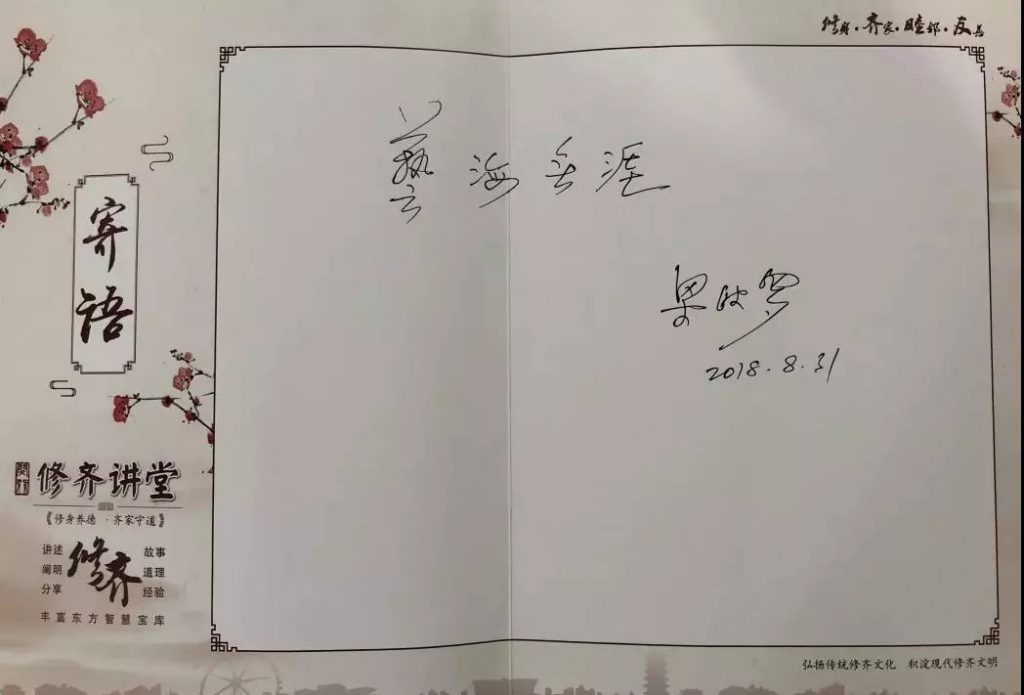 修身·齐家·睦邻·友善
藝海无涯
2018.8.31
寄语
修齐讲堂
《修身养德·齐家守道》
讲述 故事
阐明 修齐 道理
分享 经验
丰富东方智慧宝库
弘扬传统修齐文化 积淀现代修齐文明